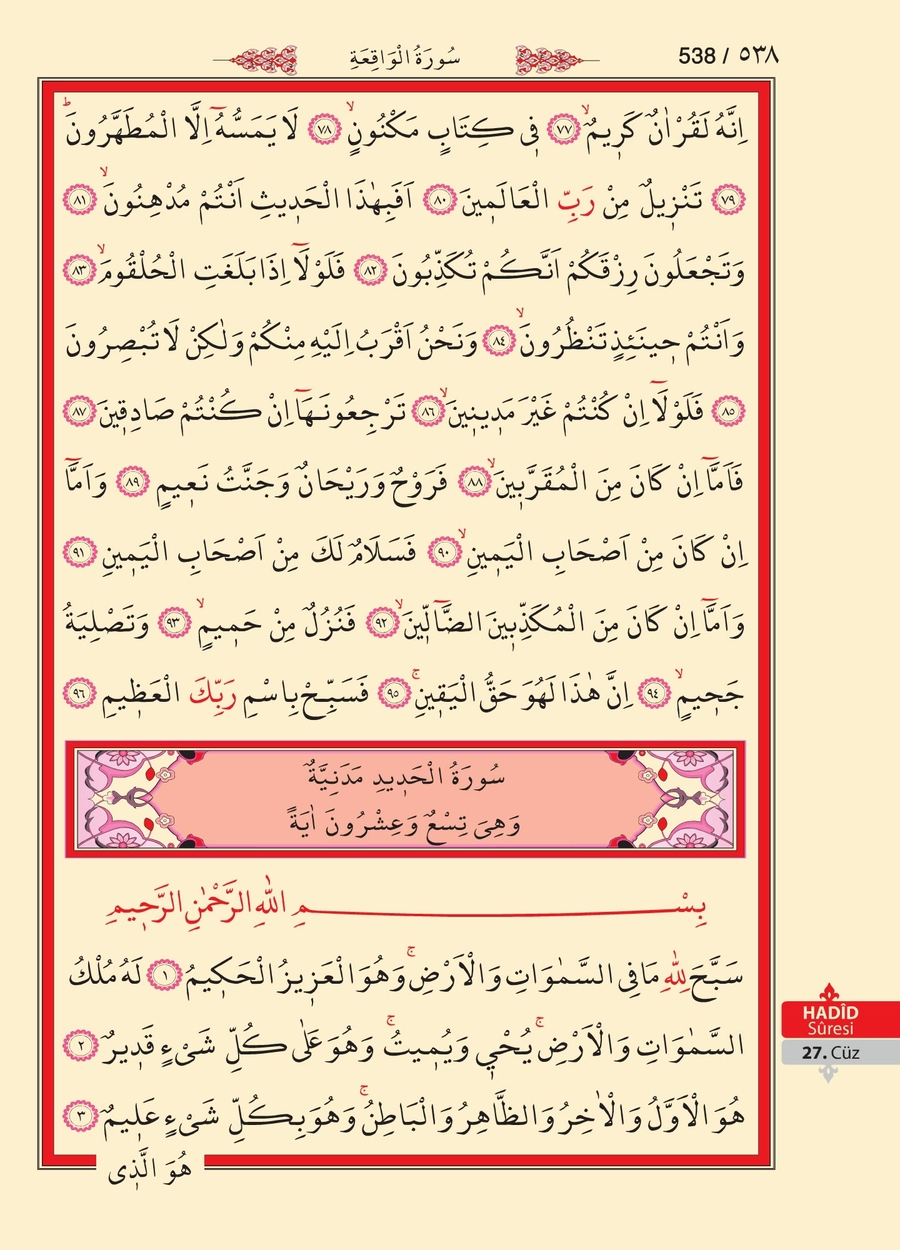 سُورَةُ الْوَاقِعَةِ
538 / ٥٣٨
اِنَّهُ لَقُرْاٰنٌ كَرِيمٌۙ ﴿٧٧﴾ فِي كِتَابٍ مَكْنُونٍۙ ﴿٧٨﴾ لَا يَمَسُّهُٓ اِلَّا الْمُطَهَّرُونَۜ
﴿٧٩﴾ تَنْزِيلٌ مِنْ رَبِّ الْعَالَمِينَ ﴿٨٠﴾ اَفَبِهٰذَا الْحَدِيثِ اَنْتُمْ مُدْهِنُونَۙ ﴿٨١﴾
وَتَجْعَلُونَ رِزْقَكُمْ اَنَّكُمْ تُكَذِّبُونَ ﴿٨٢﴾ فَلَوْلَٓا اِذَا بَلَغَتِ الْحُلْقُومَۙ ﴿٨٣﴾
وَاَنْتُمْ حِينَئِذٍ تَنْظُرُونَۙ ﴿٨٤﴾ وَنَحْنُ اَقْرَبُ اِلَيْهِ مِنْكُمْ وَلٰكِنْ لَا تُبْصِرُونَ
﴿٨٥﴾ فَلَوْلَٓا اِنْ كُنْتُمْ غَيْرَ مَدِينِينَۙ ﴿٨٦﴾ تَرْجِعُونَهَٓا اِنْ كُنْتُمْ صَادِقِينَ ﴿٨٧﴾
فَاَمَّٓا اِنْ كَانَ مِنَ الْمُقَرَّبِينَۙ ﴿٨٨﴾ فَرَوْحٌ وَرَيْحَانٌ وَجَنَّتُ نَعِيمٍ ﴿٨٩﴾ وَاَمَّٓا
اِنْ كَانَ مِنْ اَصْحَابِ الْيَمِينِۙ ﴿٩٠﴾ فَسَلَامٌ لَكَ مِنْ اَصْحَابِ الْيَمِينِ ﴿٩١﴾
وَاَمَّٓا اِنْ كَانَ مِنَ الْمُكَذِّبِينَ الضَّٓالِّينَۙ ﴿٩٢﴾ فَنُزُلٌ مِنْ حَمِيمٍۙ ﴿٩٣﴾ وَتَصْلِيَةُ
جَحِيمٍۙ ﴿٩٤﴾ اِنَّ هٰذَا لَهُوَ حَقُّ الْيَقِينِۚ ﴿٩٥﴾ فَسَبِّحْ بِاسْمِ رَبِّكَ الْعَظِيمِ ﴿٩٦﴾
سُورَةُ الْحَدِيدِ مَدَنِيَّةٌ
وَهِيَ تِسْعٌ وَعِشْرُونَ اٰيَةً
بِسْمِ اللّٰهِ الرَّحْمٰنِ الرَّحِيمِ
سَبَّحَ لِلّٰهِ مَا فِي السَّمٰوَاتِ وَالْاَرْضِۚ وَهُوَ الْعَزِيزُ الْحَكِيمُ ﴿١﴾ لَهُ مُلْكُ
السَّمٰوَاتِ وَالْاَرْضِۚ يُحْيِي وَيُمِيتُۚ وَهُوَ عَلٰى كُلِّ شَيْءٍ قَدِيرٌ ﴿٢﴾
هُوَ الْاَوَّلُ وَالْاٰخِرُ وَالظَّاهِرُ وَالْبَاطِنُۚ وَهُوَ بِكُلِّ شَيْءٍ عَلِيمٌ ﴿٣﴾
هُوَ الَّذِي
HADÎD
Sûresi
27. Cüz